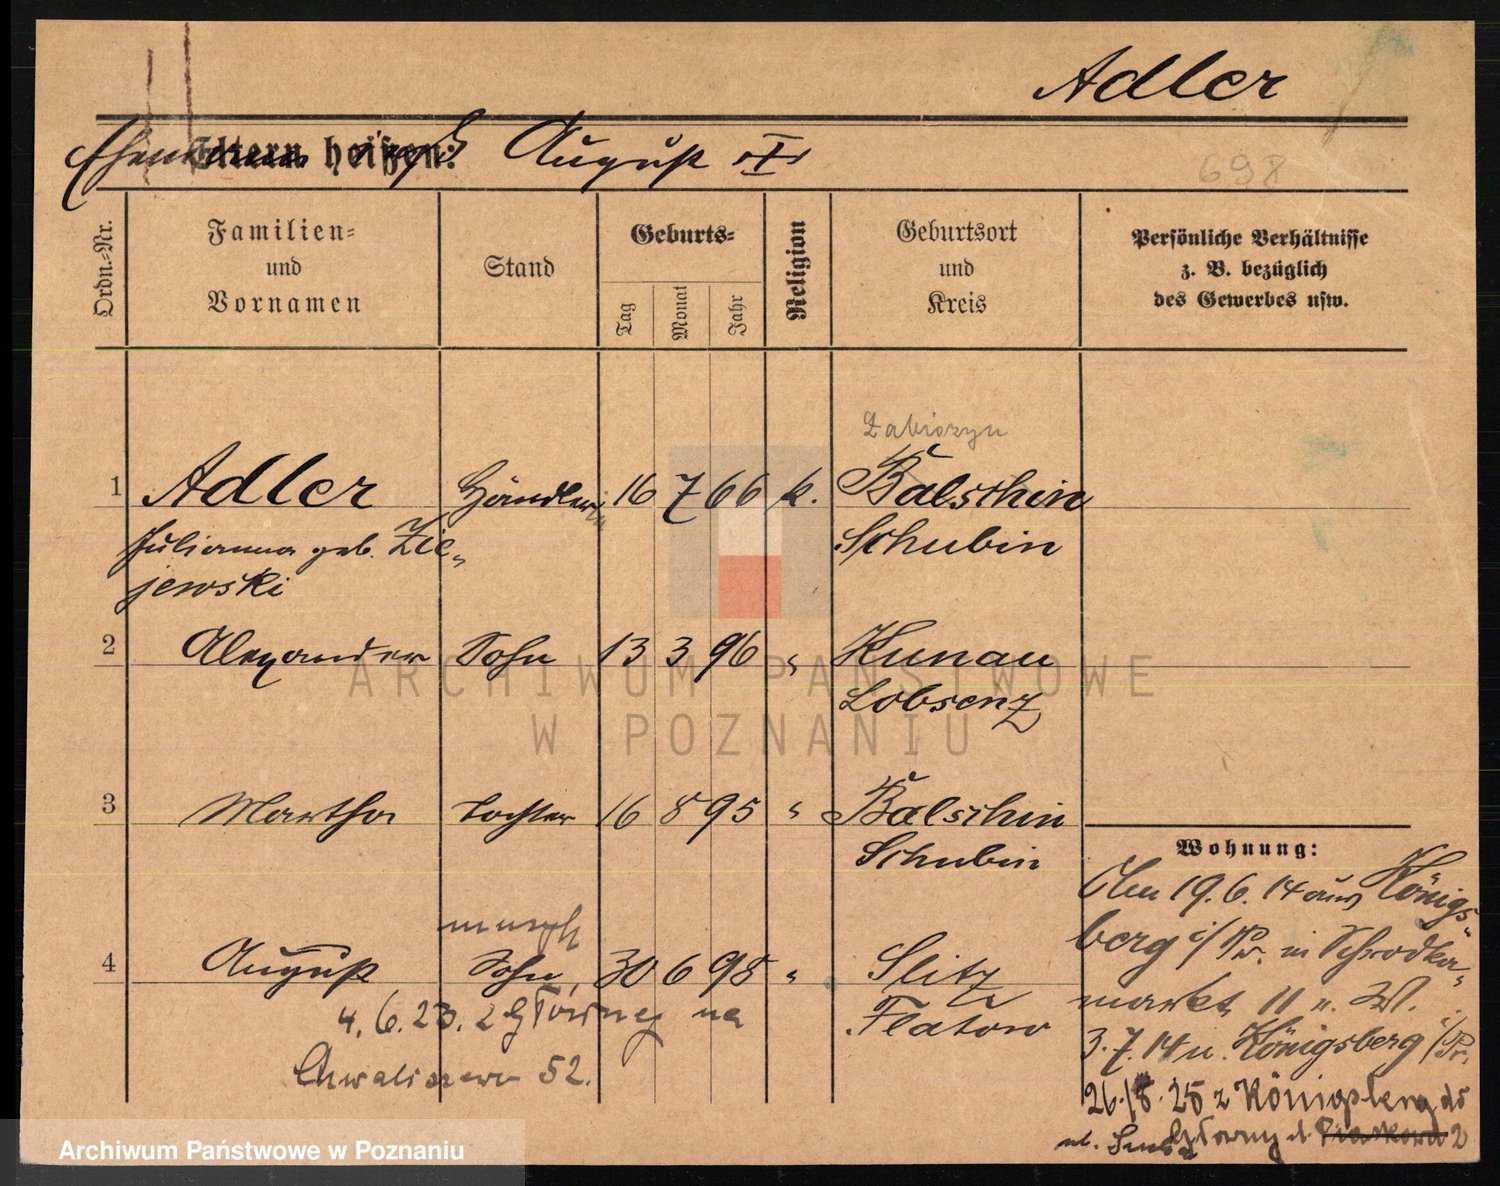 Adler
Eltern heißen: August I
698
Ordn.-Nr.
Familien-
und
Vornamen
Stand
Geburts-
Tag
Monat
Jahr
Religion
Geburtsort
und
Kreis
Persönliche Verhältnisse
z. B. bezüglich
des Gewerbes usw.
Żabiczyn
1 Adler Händlerin 16 7 66 k. Balschin
Julianna geb. Zie-
jewski
Schubin
2 Alexander Sohn 13 3 96 " Kunau
Lobsenz
3 Martha Tochter 16 8 95 " Balschin
Schubin
4 August Sohn, 30 6 98 " Slitz
Flatow
4. 6. 23. z Głównej na
Chwaliszewo 52.
Wohnung:
19. 6. 14 aus Königs-
berg i/Pr. in Schrodka-
markt 11 u. W.
3. 7. 14 n. Königsberg i/Pr.
26./8. 25 z Königsberg do
ul. Główny
ARCHIWUM PAŃSTWOWE
W POZNANIU
Archiwum Państwowe w Poznaniu